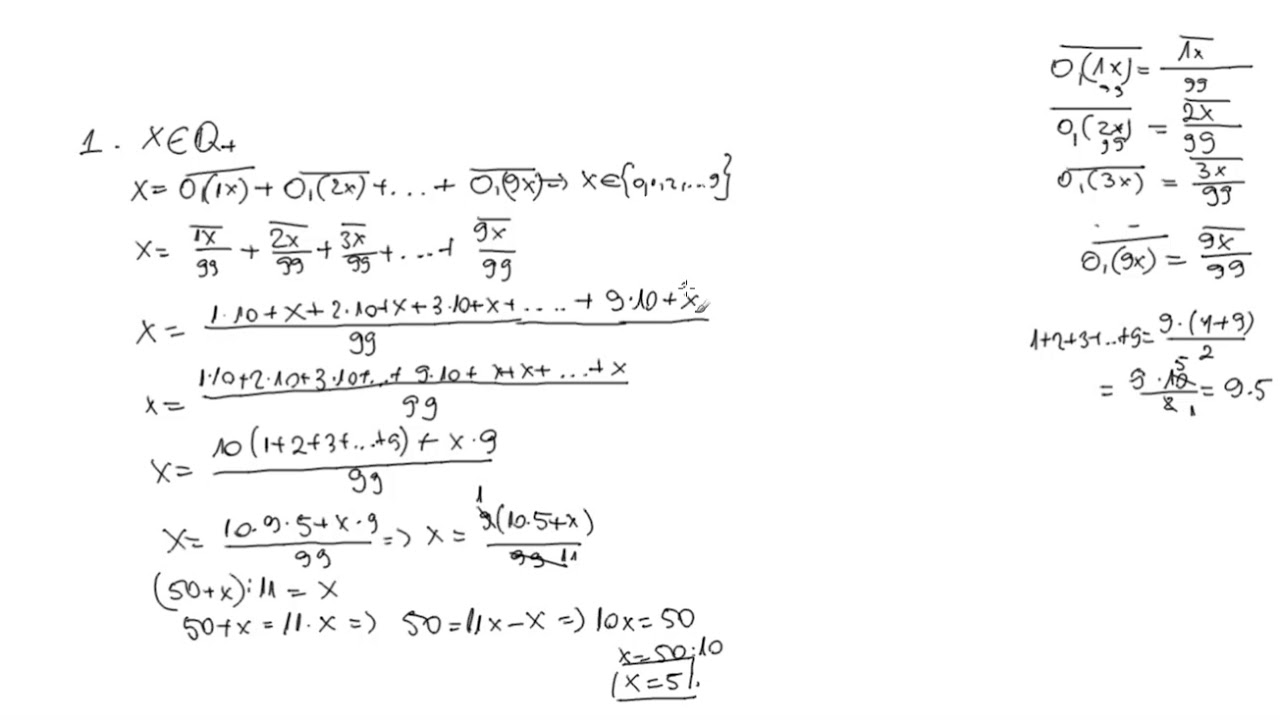 1. x∈Q₊
x = 0,(1x) + 0,(2x) + . . . + 0,(9x) => x∈{0,1,2,...9}
x = 1x/99 + 2x/99 + 3x/99 + . . . + 9x/99
x = 1·10+x+2·10+x+3·10+x+ . . . . + 9·10+x / 99
x = 1·10+2·10+3·10+...+ 9·10+ x+x+ ...+x / 99
x = 10(1+2+3+...+9) + x·9 / 99
x = 10·9·5+x·9 / 99 => x = 9(10·5+x) / 99 1 11
(50+x):11 = x
50+x = 11·x => 50 = 11x-x => 10x = 50
x = 50:10
x = 5.
0,(1x) = 1x/99
99
0,(2x) = 2x/99
99
0,(3x) = 3x/99
. - -
0,(9x) = 9x/99
1+2+3+..+9 = 9·(1+9)/2
= 9·10/2 5 1 = 9·5